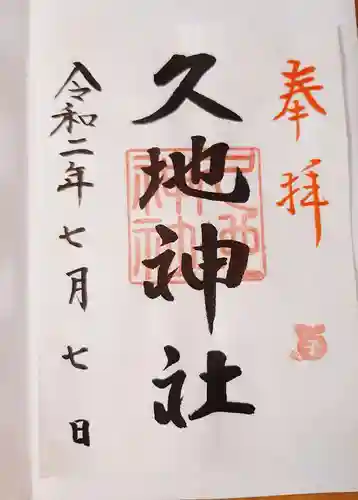 奉拝
久地神社
令和二年七月七日